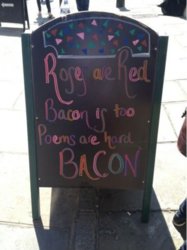 Roses are Red
Bacon is too
Poems are hard
BACON